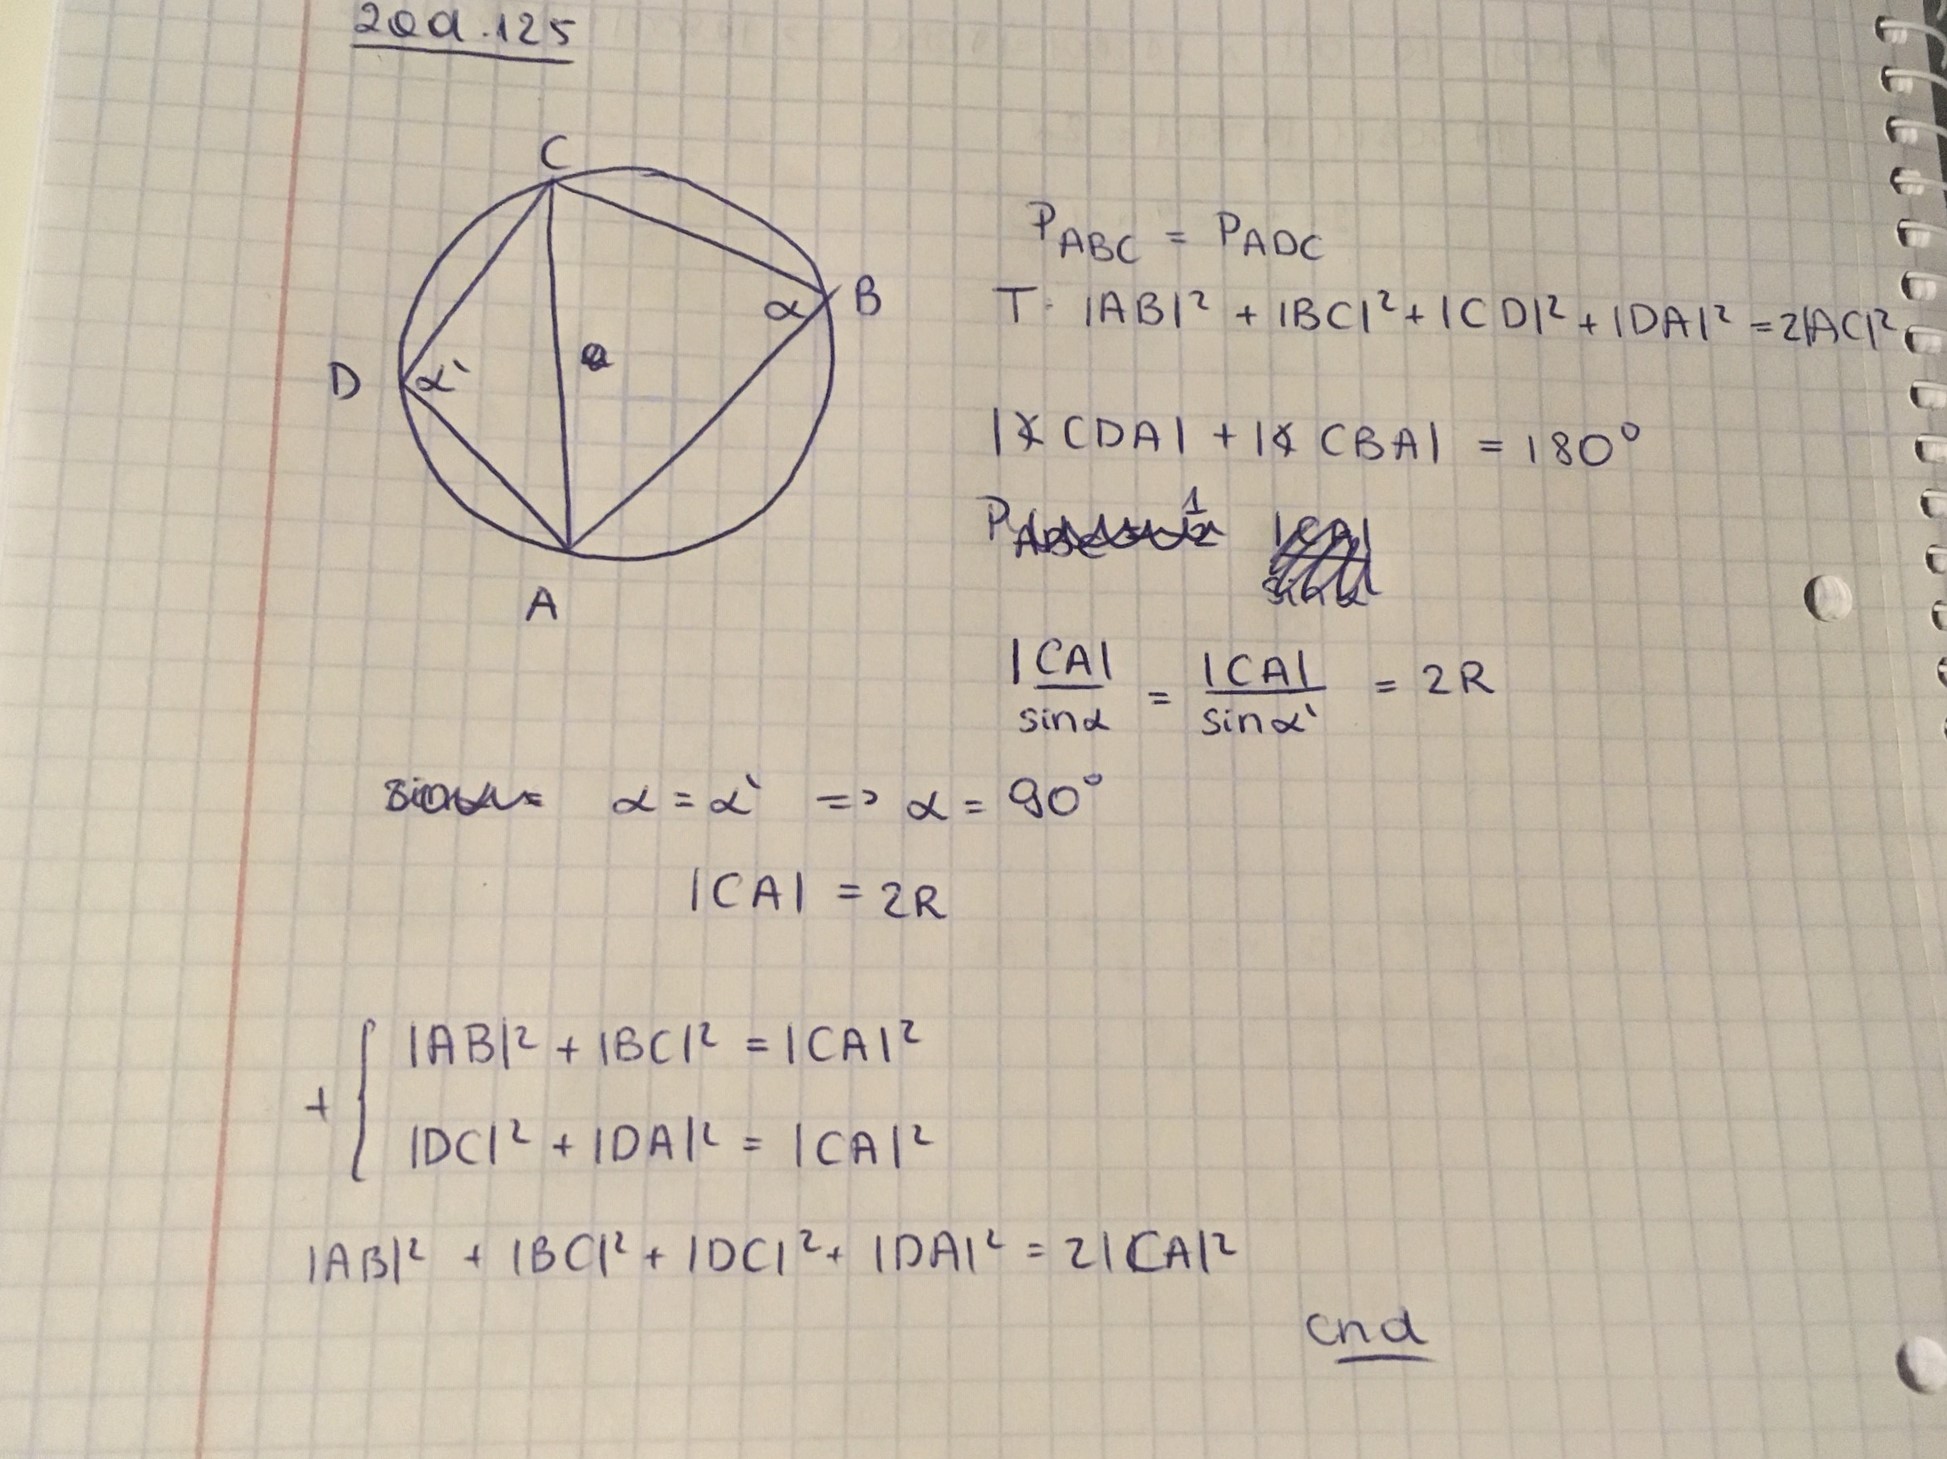 zad.125
C
B
α
D
α`
A
P_ABC = P_ADC
T: |AB|² + |BC|² + |CD|² + |DA|² = 2|AC|²
|∢ CDA| + |∢ CBA| = 180°
|CA|/sinα = |CA|/sinα` = 2R
α = α` => α = 90°
|CA| = 2R
+ { |AB|² + |BC|² = |CA|²
|DC|² + |DA|² = |CA|²
|AB|² + |BC|² + |DC|² + |DA|² = 2|CA|²
cnd